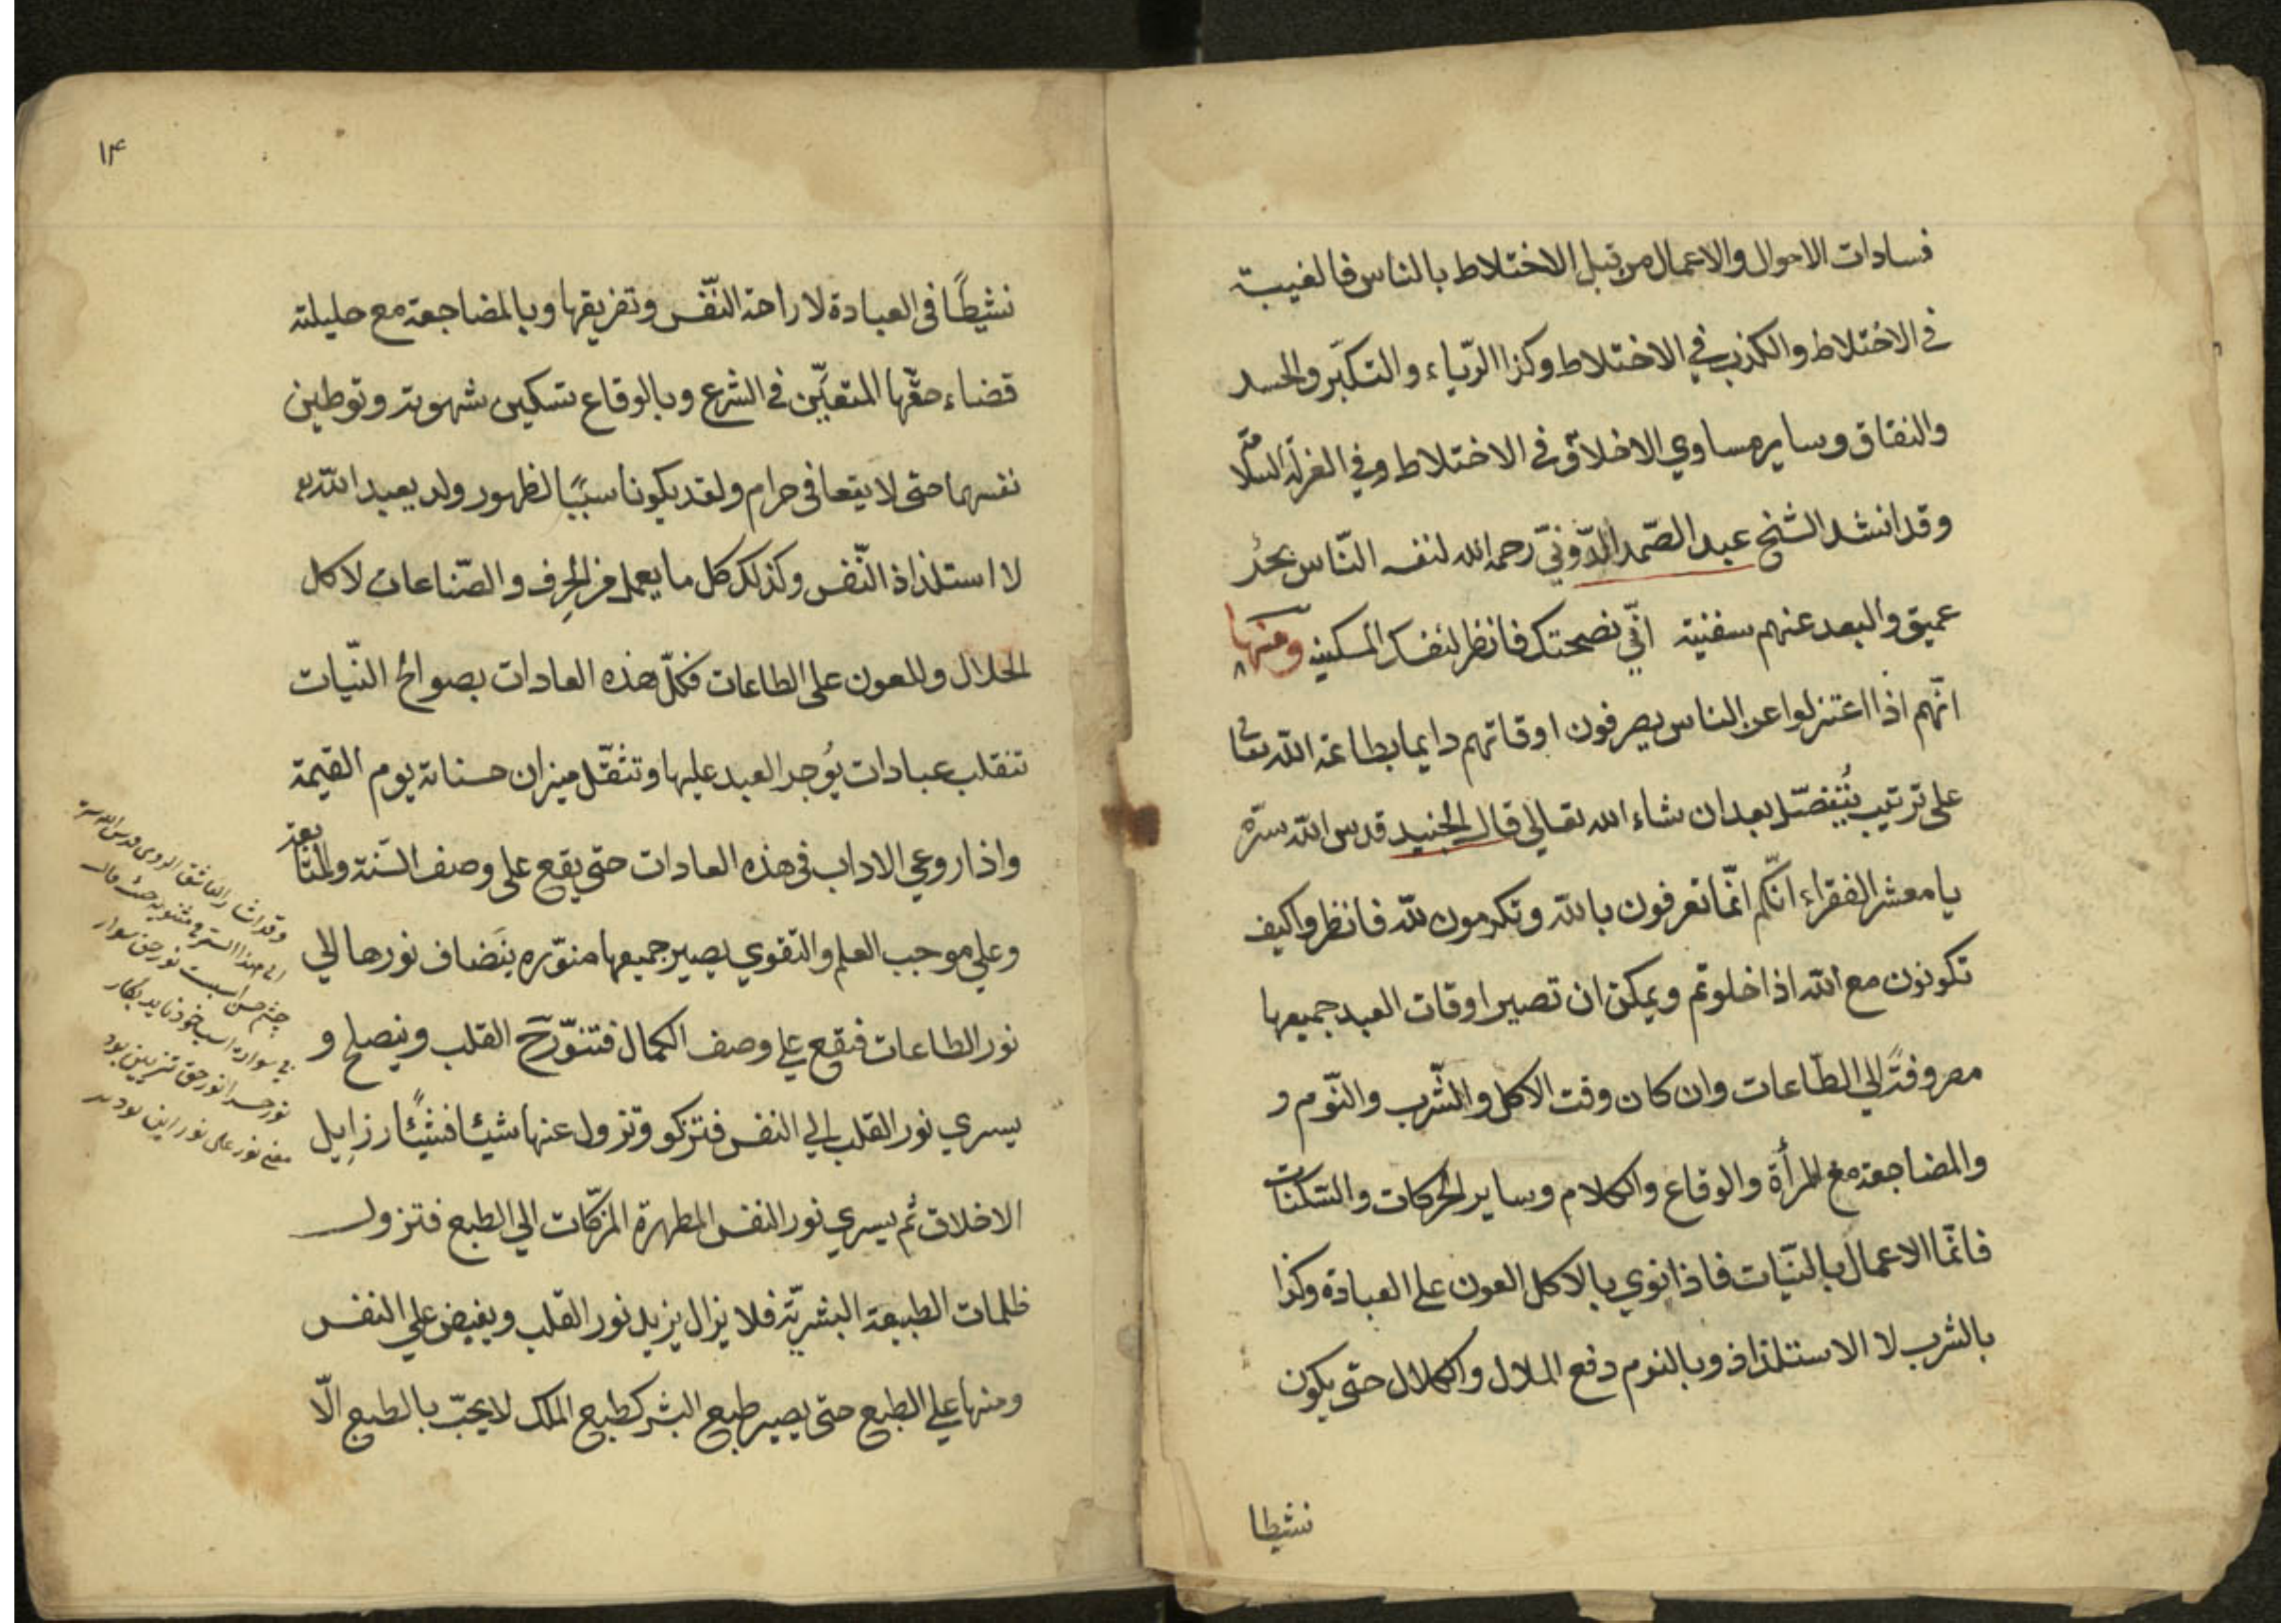 فسادات الاحوال والاعمال من قبل الاختلاط بالناس فالغيبة
في الاختلاط والكذب في الاختلاط وكذا الرّياء والتكبّر والحسد
والنفاق وساير مساوي الاخلاق في الاختلاط وفي العزلة السلامة
وقد انشد الشيخ عبد الصّمد الدّوني رحمه الله لنفسه النّاس بحُر
عميق والبعد عنهم سفنية انّي نصحتك فانظر لنفسك المسكينه ومنها
انّهم اذا اعتزلوا عن الناس يصرفون اوقاتهم دايما بطاعة الله تعالى
على ترتيب يُفصّل بعد ان شاء الله تعالي قال الجنيد قدس الله سرّه
يا معشر الفقراء انّكم انّما تعرفون بالله وتكرمون لله فانظروا كيف
تكونون مع الله اذا خلوتم ويمكن ان تصير اوقات العبد جميعها
مصروفةً الي الطّاعات وان كان وقت الاكل والشّرب والنّوم و
والمضاجعة مع المرأة والوقاع والكلام وساير الحركات والسّكنات
فانّما الاعمال بالنّيات فاذا نوي بالاكل العون على العبادة وكذا
بالشرب لا الاستلذاذ وبالنوم دفع الملال والكلال حتى يكون
نشيطا
١٣
نشيطًا في العبادة لا راحة النّفس وتفريقها وبالمضاجعة مع حليلته
قضاء حقّها المتعيّن في الشرع وبالوقاع تسكين شهوته وتوطين
نفسهما حتى لا يقعا في حرام ولقد يكونا سببًا لظهور ولد يعبد الله
لا استلذاذ النّفس وكذلك كل ما يعمل من الحِرف والصّناعات لاكل
الحلال وللعون على الطاعات فكلّ هذه العادات بصوالح النّيات
تنقلب عبادات يُوجر العبد عليها وتثقّل ميزان حسناته يوم القيمة
واذا روعي الاداب في هذه العادات حتى يقع على وصف السّنة والمتابعة
وعلي موجب العلم والتقوي يصير جميعها منوّره ينضاف نورها الي
نور الطاعات فيقع علي وصف الكمال فتنوّر القلب وينصلح و
يسري نور القلب الي النفس فتزكو وتزول عنها شيئا فشيئًا رزايل
الاخلاق ثم يسري نور النفس المطهرة المزكّات الي الطبع فتزول
ظلمات الطبيعة البشريّة فلا يزال يزيد نور القلب ويفيض علي النفس
ومنها علي الطبع حتى يصير طبع البشر كطبع الملك لا يحبّ بالطبع الّا
وقد اشار العاشق الرومي قدس الله سره
الى هذا السر في مثنويه حيث قال
چشم حس اسبست نور حق سوار
بي سواره اسب خود نايد بكار
نور حس را نور حق تزيين بود
معنى نور على نور اين بود